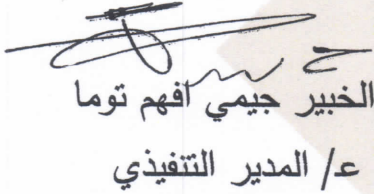 الخبير جيمي افهم توما
ع/ المدير التنفيذي